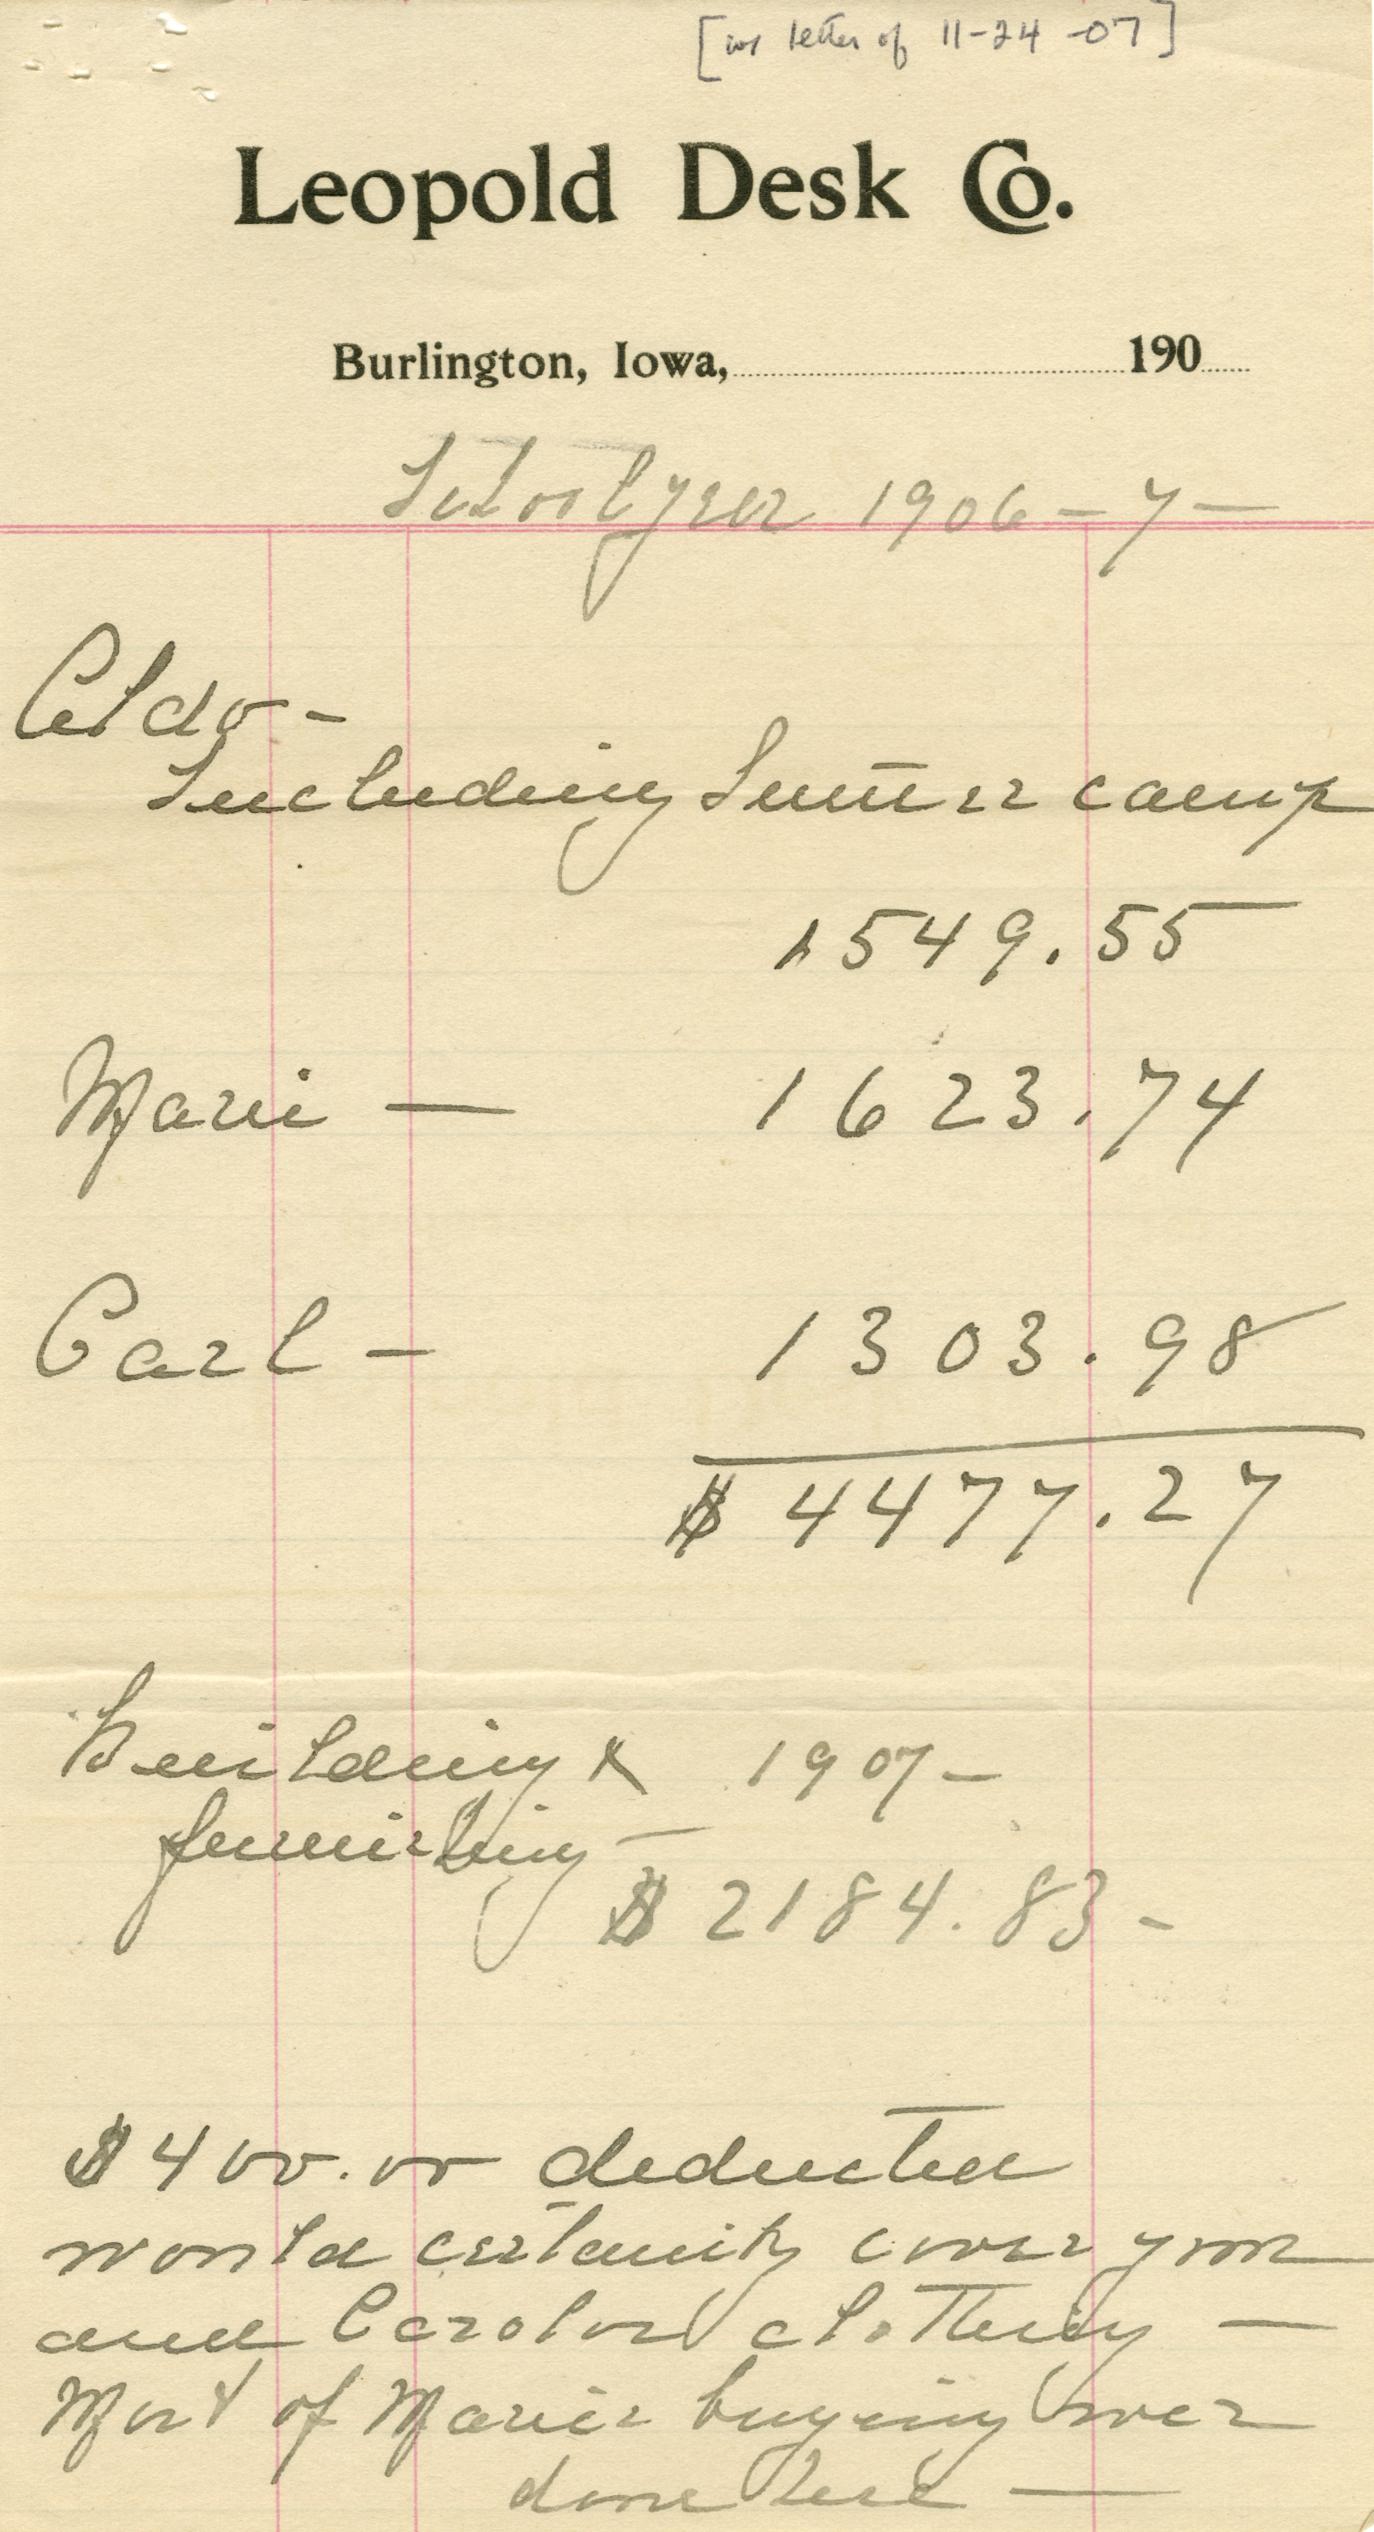 [w letter of 11-24-07]
Leopold Desk Co.
Burlington, Iowa, 190
School year 1906-7-
Aldo-
Including Summer camp
1549.55
Marie — 1623.74
Carl - 1303.98
$ 4477.27
Building & 1907-
furnishing -
$ 2184.83-
$400.00 deducted
would certainly cover your
and Carolor clothing —
Most of Maries buying over
done here —